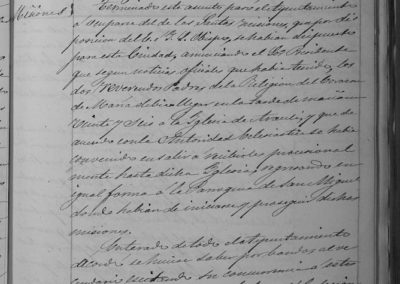 Misiones
Terminado este asunto, pasó el Ayuntamiento
á ocuparse de las Santas misiones, que por dis
posicion del Sr. Obispo, se habian dispuesto
para esta Ciudad, anunciando el Sr. Presidente
que segun noticias oficiales que habia tenido, los
dos Reverendos Padres de la Religion del Corazon
de Maria debian llegar en la tarde de mañana
veinte y seis a la Iglesia de Araceli, y que de
acuerdo con la Autoridad Eclesiastica se habia
convenido en salir á recibirles procesional
mente hasta dicha Iglesia, regresando en
igual forma á la Parroquia de San Miguel
donde habian de iniciarse y proseguir dichas
misiones.
Enterado de todo el Ayuntamiento
acordó se hiciese saber por bandos al ve
cindario su concurrencia á estos